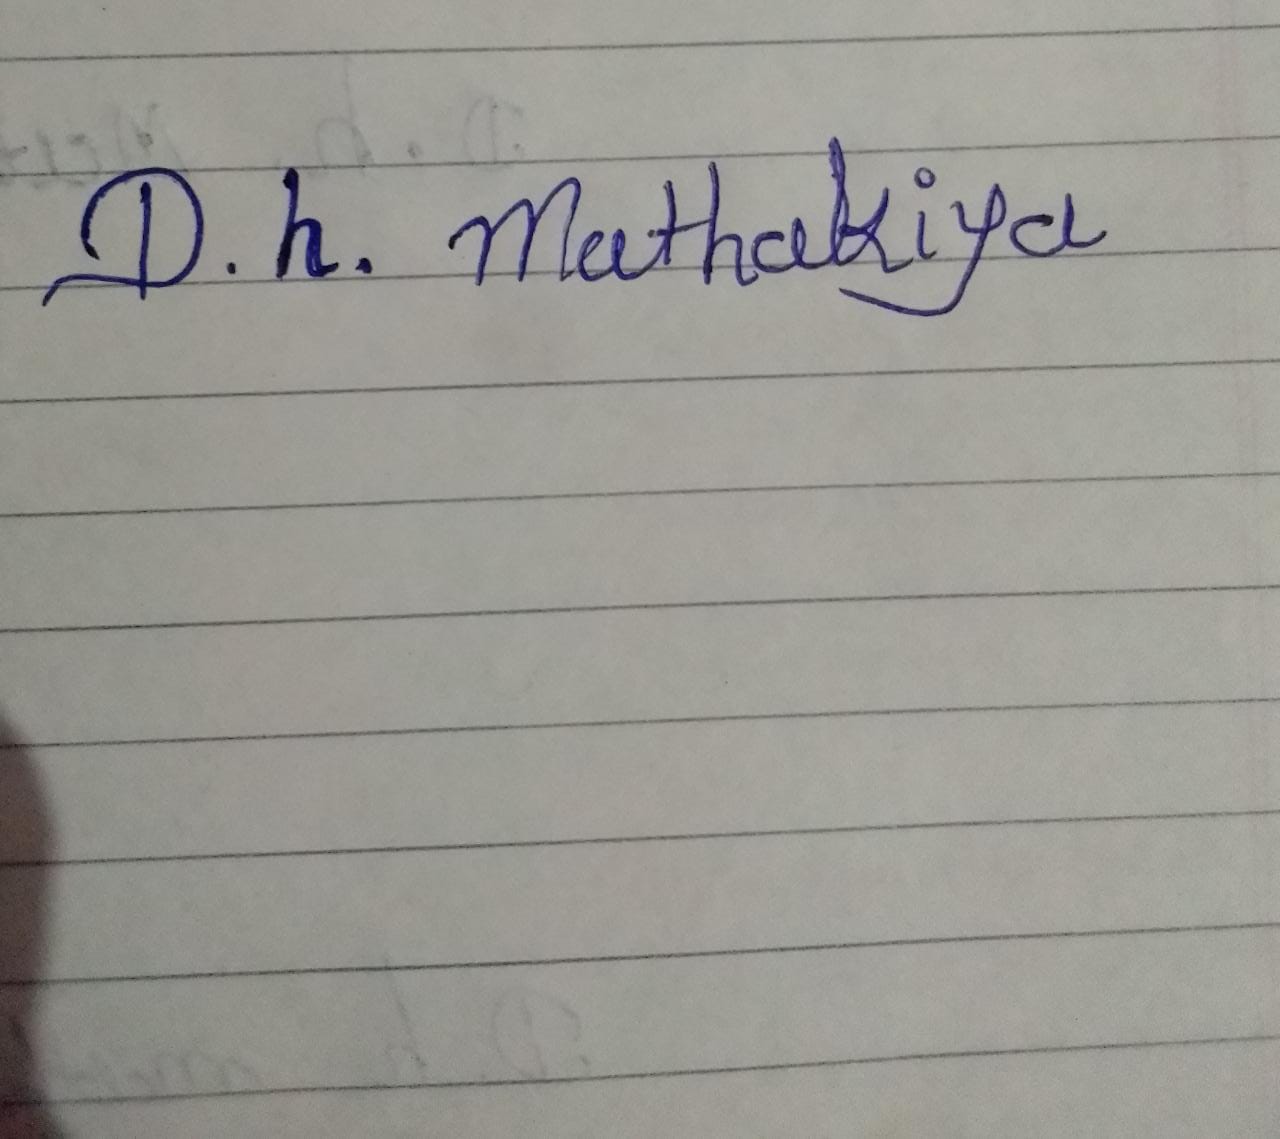 D. h. Mathakiya